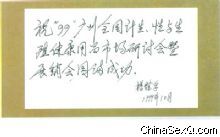 祝"99"广州全国计生、性与生
殖健康用品市场研讨会暨
展销会圆满成功.
1999年10月
ChinaSexQ.com